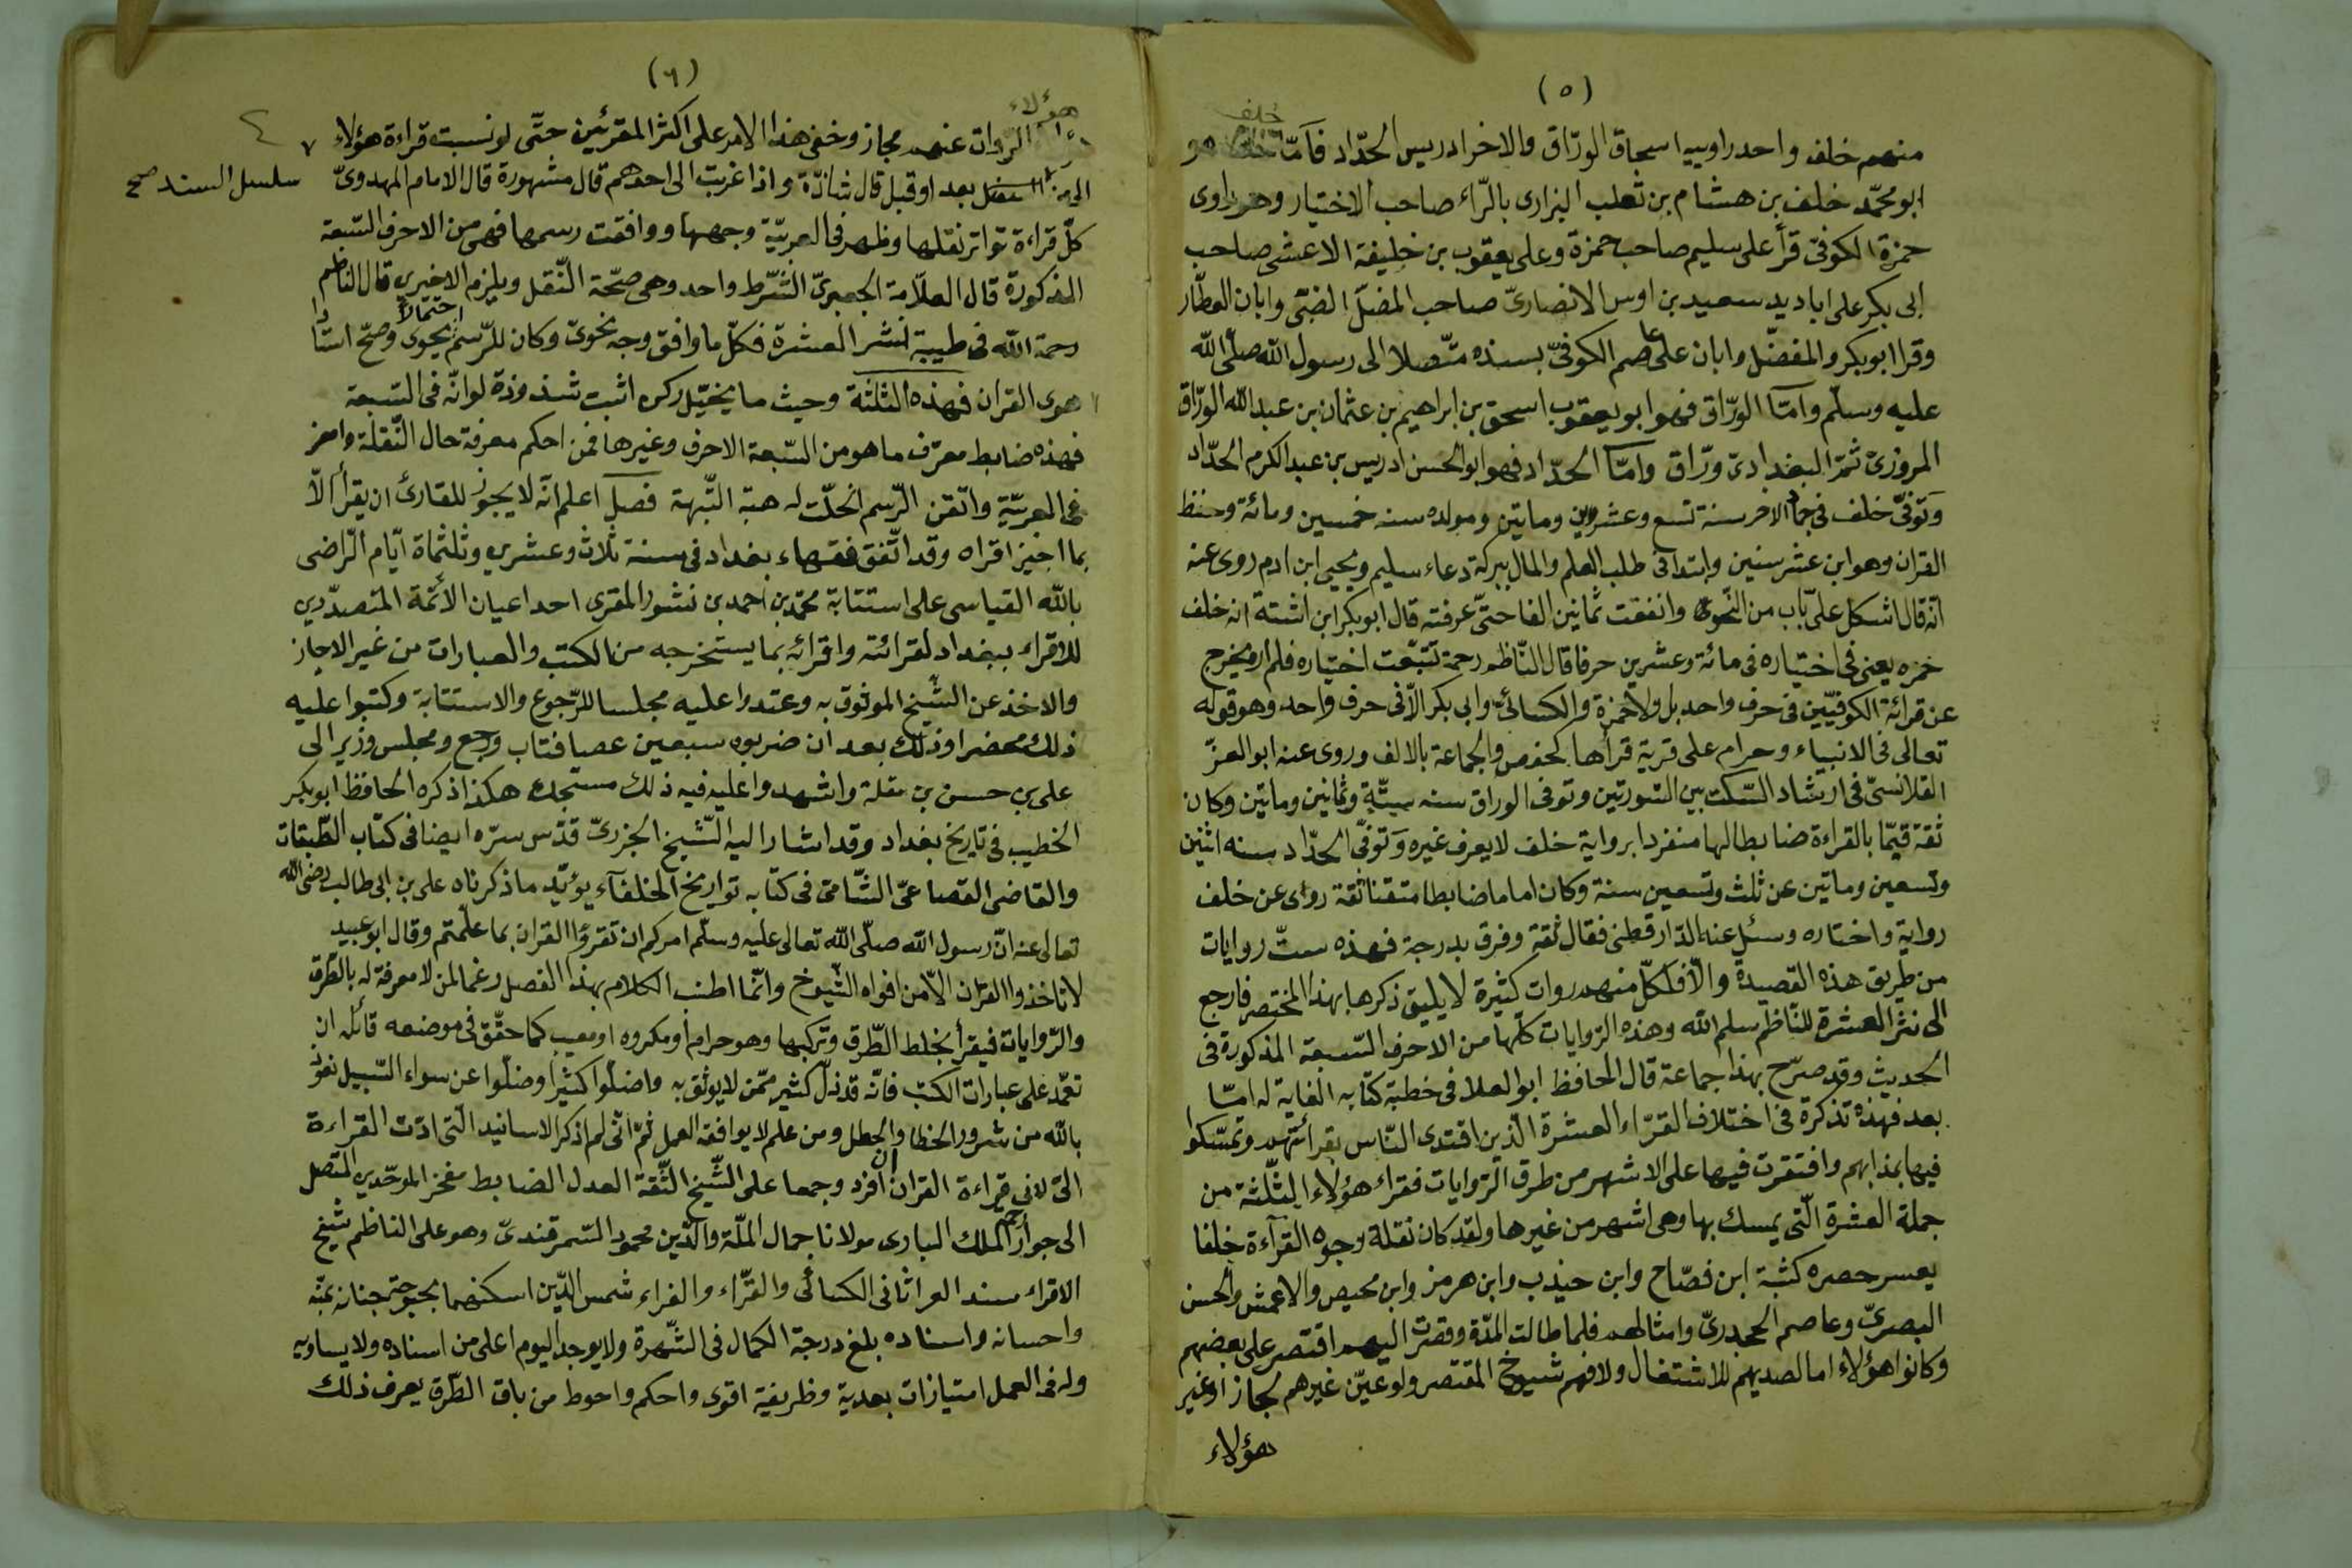 (٥)
منهم خلف واحد راوييه اسحاق الورّاق والاخر ادريس الحدّاد فامّا خلف هو
ابو محمّد خلف بن هشام بن ثعلب البزارى بالرّاء صاحب الاختيار وهو راوى
حمزة الكوفىّ قرأ على سليم صاحب حمزة وعلى يعقوب بن خليفة الاعشى صاحب
ابى بكر على ابا ديد سعيد بن اوس الانصارىّ صاحب المفضّل الضبّى وابان العطّار
وقرا ابو بكر والمفضّل وابان على عاصم الكوفىّ بسنده متّصلا الى رسول الله صلّى الله
عليه وسلّم وامّا الورّاق فهو ابو يعقوب اسحق بن ابراهيم بن عثمان بن عبد الله الورّاق
المروزىّ ثمّ البغدادىّ ورّاق وامّا الحدّاد فهو ابو الحسن ادريس بن عبد الكرم الحدّاد
وتوفّى خلف فى جماد الاخر سنة تسع وعشرين وماتين ومولده سنه خمسين ومائة وحفظ
القران وهو ابن عشر سنين وابتدا فى طلب العلم والمال ببركة دعاء سليم ويحيى ابن ادم روى عنه
انّه قال اشكل علىّ باب من النّحو وانفقت ثمانين الفا حتىّ عرفته قال ابو بكر ابن اشته انه خلف
حمزه يعنى فى اختياره فى مائة وعشرين حرفا قال النّاظم رحمه تتبّعت اختياره فلم اره يخرج
عن قرائة الكوفيّين فى حرف واحد بل ولا حمزة والكسائىّ وابى بكر الاّ فى حرف واحد وهو قوله
تعالى فى الانبياء وحرام على قرية قراها كحفص والجماعة بالالف وروى عنه ابو العزّ
القلانسىّ فى ارشاد السّكت بين السّورتين وتوفى الوراق سنه ستّة وثمانين وماتين وكان
ثقة قيّما بالقراءة ضابطا لها منفردا برواية خلف لا يعرف غيره وتوفّى الحدّاد سنه اثنين
وتسعين وماتين عن ثلث وتسعين سنة وكان اماما ضابطا متقنا ثقة روى عن خلف
رواية واختاره وسئل عنه الدّارقطنى فقال ثقة وفرق بدرجة فهذه ستّ روايات
من طريق هذه القصيدة والاّ فلكلّ منهم روات كثيرة لا يليق ذكرها بهذا المختصر فارجع
الى نشر العشرة للنّاظم سلم الله وهذه الرّوايات كلّها من الاحرف السّبعة المذكورة فى
الحديث وقد صرّح بهذا جماعة قال الحافظ ابو العلا فى خطبة كتابه الغاية له امّا
بعد فهذه تذكرة فى اختلاف القرّاء العشرة الّذين اقتدى النّاس بقرائتهم وتمسّكوا
فيها بمذابهم واقتقرت فيها على الاشهر من طرق الرّوايات فقراء هؤلاء الثّلثة من
جملة العشرة الّتى يمسك بها وهى اشهر من غيرها ولقد كان نقلة وجوه القراءة خلفا
يعسر حصره كشبة ابن فصّاح وابن جندب وابن هرمز وابن محيص والاعمش والحسن
البصرىّ وعاصم الجحدرىّ وامثالهم فلما طالت المدّة وقصرت اليهم اقتصر على بعضهم
وكانوا هؤلاء اما لصديهم للاشتغال ولا فهم شيوخ المقتصر ولو عيّن غيرهم لجاز او غير
هؤلاء
(٦)
هؤلاء
الرّوات عنهم مجاز وخفى هذا الامر على اكثر المقرئين حتّى لو نسبت قراءة هؤلاء
الى من بعد او قبل قال شاذّة واذا غربت الى احدهم قال مشهورة قال الامام المهدوىّ
سلسل السند صح
كلّ قراءة تواتر نقلها وظهر فى العربيّة وجهها ووافقت رسمها فهى من الاحرف السّبعة
المذكورة قال العلاّمة الجعبرىّ الشّرط واحد وهى صحّة النّقل ويلزم الاخيرى قال الناظم
رحمة الله فى طيبة لنشر العشرة فكلّ ما وافق وجه نحوىّ وكان للرّسم احتمالاً يحوى وصحّ استا دا
هوى القران فهذه الثلثة وحيث ما يختل ركن اثبت شذوذة لو انّه فى السّبعة
فهذه ضابط معرّف ما هو من السّبعة الاحرف وغيرها فمن احكم معرفة حال النّقلة وامعن
فى العربيّة واتقن الرّسم انحلّت له هبة الشّبهة فصل اعلم انّه لا يجوز للقارئ ان يقرأ الاّ
بما اجيز اقراه وقد اتّفق فقهاء بغداد فى سنة ثلاث وعشرين وثلثماة ايّام الرّاضى
بالله القياسى على استتابة محمّد بن احمد بن نشور المقرى احد اعيان الائمّة المتصدّرين
للاقراء ببغداد لقرائته واقرائه بما يستخرجه من الكتب والعبارات من غير الاجاز
والاخذ عن الشّيخ الموثوق به وعقدوا عليه مجلسا للرّجوع والاستتابة وكتبوا عليه
ذلك محضرا وذلك بعد ان ضربوه سبعين عصا فتاب ورجع ومجلس وزير الى
على بن حسن بن مقلة واشهدوا عليه فيه ذلك مستجده هكذا ذكره الحافظ ابو بكر
الخطيب فى تاريخ بغداد وقد اشار اليه الشّيخ الجزرىّ قدّس سرّه ايضا فى كتاب الطّبقات
والقاضى القصاعىّ الشّامى فى كتابه تواريخ الخلفاء يؤيّد ما ذكرناه على بن ابى طالب رضى الله
تعالى عنه انّ رسول الله صلّى الله تعالى عليه وسلّم امركم ان تقرؤا القران بما علّمتم وقال ابو عبيد
لا تاخذوا القران الاّ من افواه الشّيوخ وانّما اطنب الكلام بهذا الفصل رغما لمن لا معرفة له بالطّرق
والرّوايات فيقرأ بخلط الطّرق وتركبها وهو حرام او مكروه او معيب كما حقّق فى موضعه قائله ان
تعمّد على عبارات الكتب فانّه قد زلّ كثير ممّن لا يوثق به واضلّوا كثيرا وضلّوا عن سواء السّبيل نعوذ
بالله من شرور الخطا والخطل ومن علم لا يوافقه العمل ثمّ انّى لم اذكر الاسانيد الّتى ادّت القراءة
الىّ لانى قراءة القران افرد وجمعا على الشّيخ الثّقة العدل الضابط مفخر الموحّدين المتّصل
الى جوار الملك البارى مولانا جمال الملّة والدّين محمود السّمرقندىّ وهو على الناظم شيخ
الاقراء سند العراثانى الكسائى والقرّاء والفراء شمس الدّين اسكنهما بحبوحة جنانه بمنّه
واحسانه واسناده بلغ درجة الكمال فى الشّهرة ولا يوجد اليوم اعلى من اسناده ولا يساويه
وله فى العمل امتيازات بعدية وظريفية اقوى واحكم واحوط من باق الطّرق يعرف ذلك